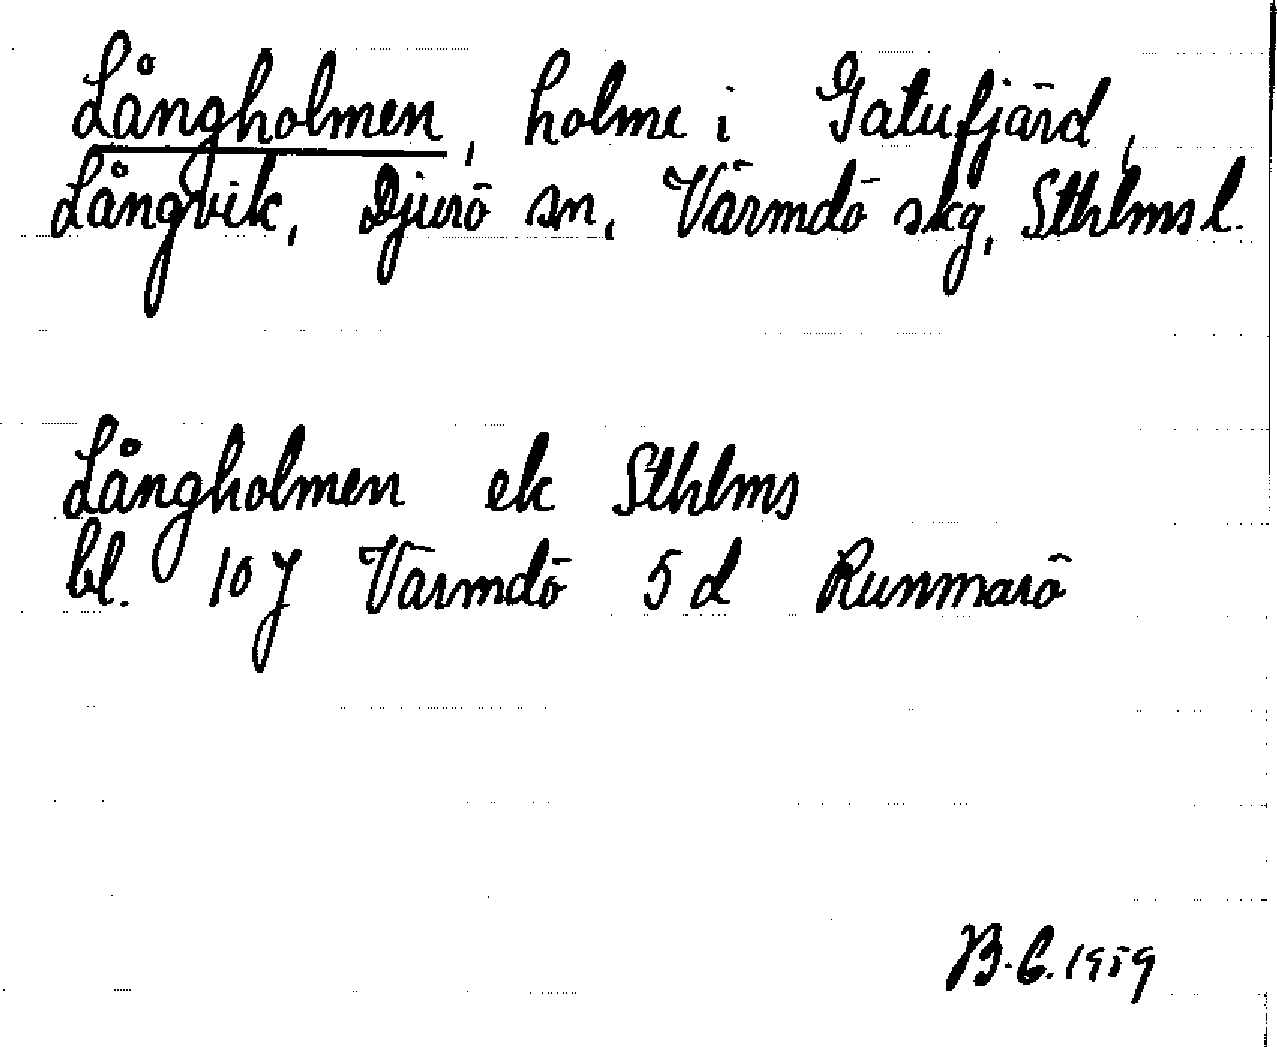 Långholmen, holme i Gatufjärd,
Långvik, Djurö sn, Värmdö skg, Sthlms l.
Långholmen ek Sthlms
bl. 10 J Värmdö 5 d Runmarö
B.C. 1959